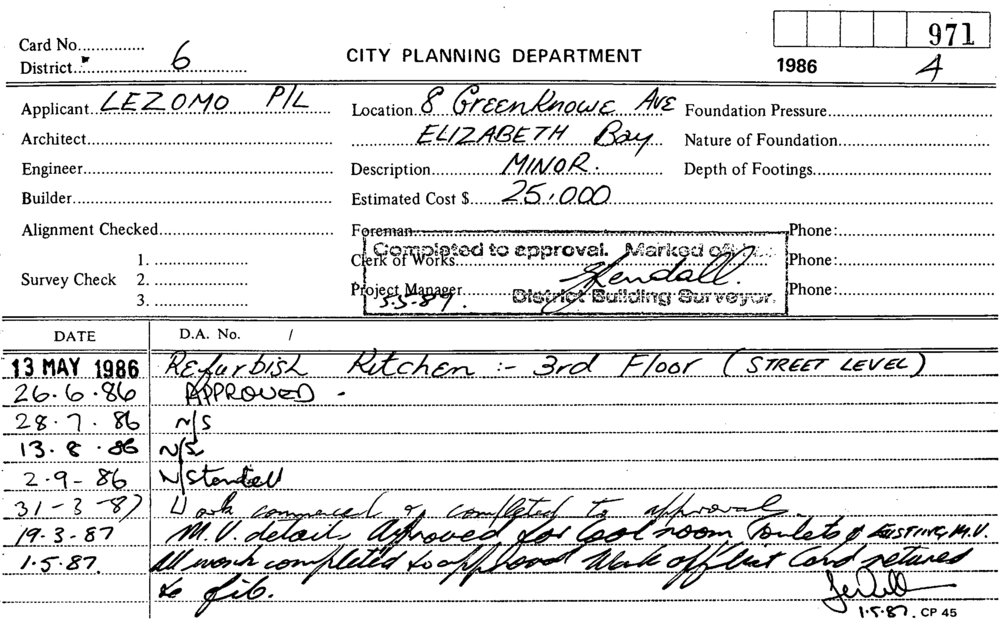 971
Card No...............
District.... 6
CITY PLANNING DEPARTMENT
1986 4
Applicant LEZOMO P/L
Location 8 GreenKnowe AVE
Foundation Pressure
Architect
ELIZABETH Bay
Nature of Foundation
Engineer
Description MINOR.
Depth of Footings
Builder
Estimated Cost $ 25,000
Alignment Checked
Foreman
Phone:
Completed to approval. Marked off
Clerk of Works
Phone:
Survey Check 1.
2.
3.
Project Manager
Phone:
5.5.87. District Building Surveyor.
DATE D.A. No. /
13 MAY 1986 Refurbish Kitchen :- 3rd Floor (STREET LEVEL)
26.6.86 APPROVED.
28.7.86 N/S
13.8.86 N/S
2-9-86 N/Started
31-3-87 Work commenced & completed to approval.
19.3.87 M.V. details Approved for Cool room, Toilets & EXISTING M.V.
1.5.87. All work completed to approval Mark off list Card retuned
to file.
1.5.87. CP 45